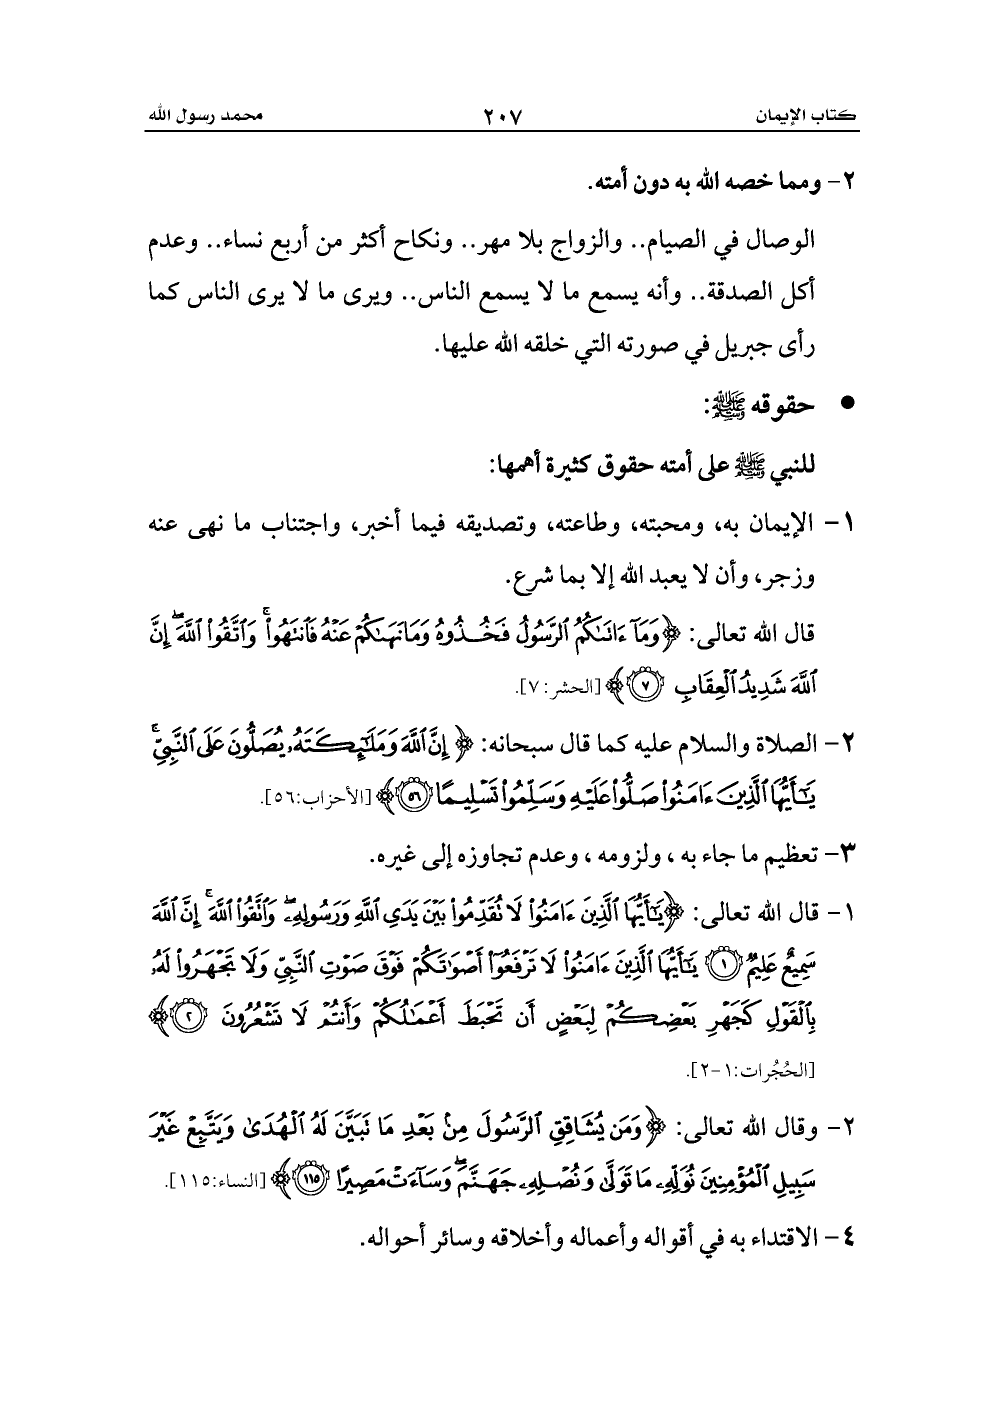 كتاب الإيمان ٢٠٧ محمد رسول الله
٢- ومما خصه الله به دون أمته.
الوصال في الصيام.. والزواج بلا مهر.. ونكاح أكثر من أربع نساء.. وعدم
أكل الصدقة.. وأنه يسمع ما لا يسمع الناس.. ويرى ما لا يرى الناس كما
رأى جبريل في صورته التي خلقه الله عليها.
● حقوقه ﷺ:
للنبي ﷺ على أمته حقوق كثيرة أهمها:
١- الإيمان به، ومحبته، وطاعته، وتصديقه فيما أخبر، واجتناب ما نهى عنه
وزجر، وأن لا يعبد الله إلا بما شرع.
قال الله تعالى: ﴿وَمَآ ءَاتَىٰكُمُ ٱلرَّسُولُ فَخُذُوهُ وَمَا نَهَىٰكُمْ عَنْهُ فَٱنتَهُوا۟ ۚ وَٱتَّقُوا۟ ٱللَّهَ ۖ إِنَّ
ٱللَّهَ شَدِيدُ ٱلْعِقَابِ ٧﴾ [الحشر:٧].
٢- الصلاة والسلام عليه كما قال سبحانه: ﴿إِنَّ ٱللَّهَ وَمَلَٰٓئِكَتَهُۥ يُصَلُّونَ عَلَى ٱلنَّبِىِّ ۚ
يَٰٓأَيُّهَا ٱلَّذِينَ ءَامَنُوا۟ صَلُّوا۟ عَلَيْهِ وَسَلِّمُوا۟ تَسْلِيمًا ٥٦﴾ [الأحزاب:٥٦].
٣- تعظيم ما جاء به ، ولزومه ، وعدم تجاوزه إلى غيره.
١- قال الله تعالى: ﴿يَٰٓأَيُّهَا ٱلَّذِينَ ءَامَنُوا۟ لَا تُقَدِّمُوا۟ بَيْنَ يَدَىِ ٱللَّهِ وَرَسُولِهِۦ ۖ وَٱتَّقُوا۟ ٱللَّهَ ۚ إِنَّ ٱللَّهَ
سَمِيعٌ عَلِيمٌ ١ يَٰٓأَيُّهَا ٱلَّذِينَ ءَامَنُوا۟ لَا تَرْفَعُوٓا۟ أَصْوَٰتَكُمْ فَوْقَ صَوْتِ ٱلنَّبِىِّ وَلَا تَجْهَرُوا۟ لَهُۥ
بِٱلْقَوْلِ كَجَهْرِ بَعْضِكُمْ لِبَعْضٍ أَن تَحْبَطَ أَعْمَٰلُكُمْ وَأَنتُمْ لَا تَشْعُرُونَ ٢﴾
[الحُجُرات:١-٢].
٢- وقال الله تعالى: ﴿وَمَن يُشَاقِقِ ٱلرَّسُولَ مِنۢ بَعْدِ مَا تَبَيَّنَ لَهُ ٱلْهُدَىٰ وَيَتَّبِعْ غَيْرَ
سَبِيلِ ٱلْمُؤْمِنِينَ نُوَلِّهِۦ مَا تَوَلَّىٰ وَنُصْلِهِۦ جَهَنَّمَ ۖ وَسَآءَتْ مَصِيرًا ١١٥﴾ [النساء:١١٥].
٤- الاقتداء به في أقواله وأعماله وأخلاقه وسائر أحواله.